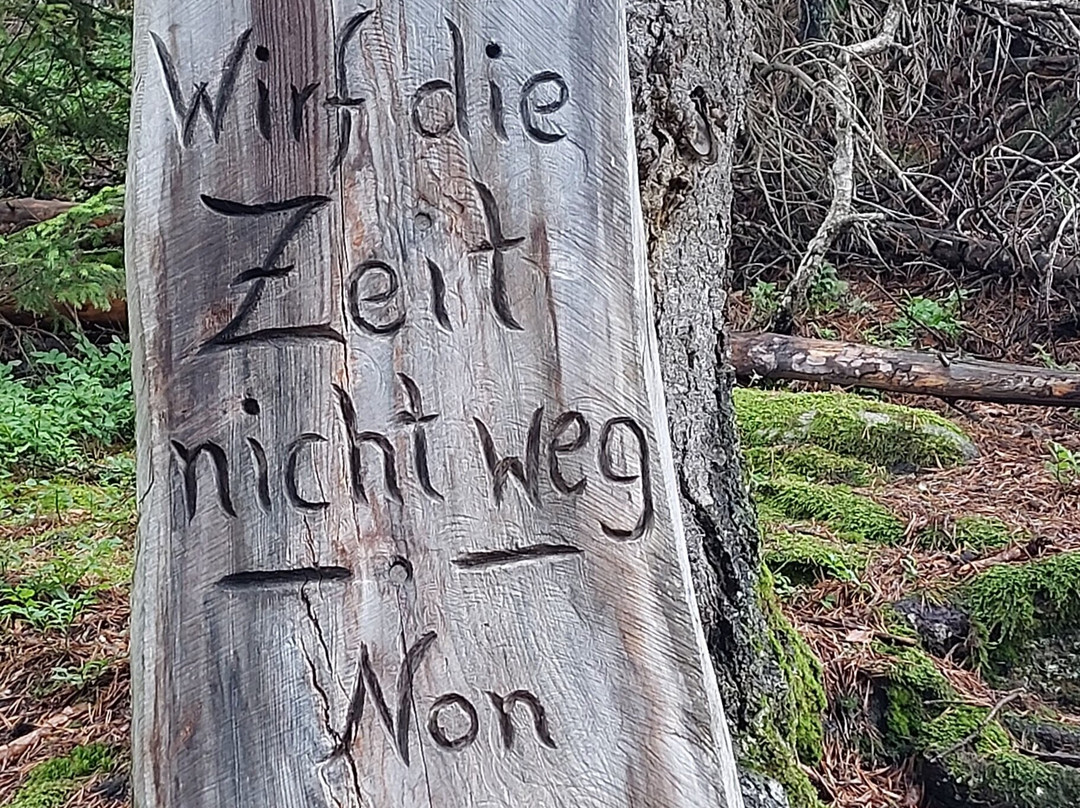 Wirf die
Zeit
nicht weg
Non